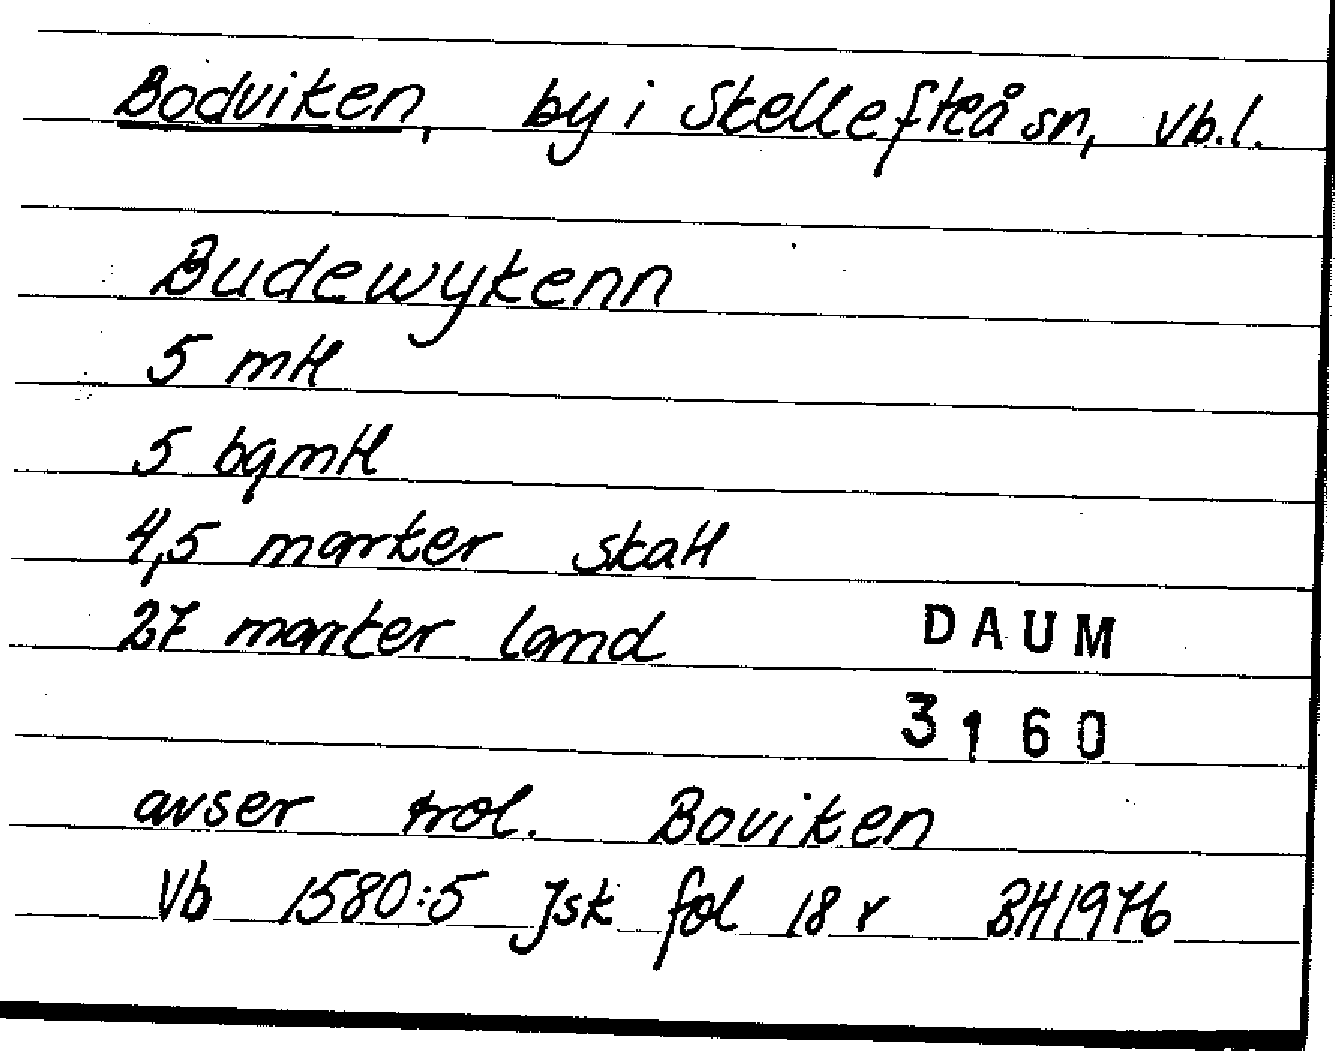 Bodviken, by i Skellefteå sn, Vb.l.
Budewykenn
5 mtl
5 bgmtl
4,5 marker skatt
27 marker land
DAUM
3160
avser trol. Boviken
Vb 1580:5 Jsk fol 18 r BH1976